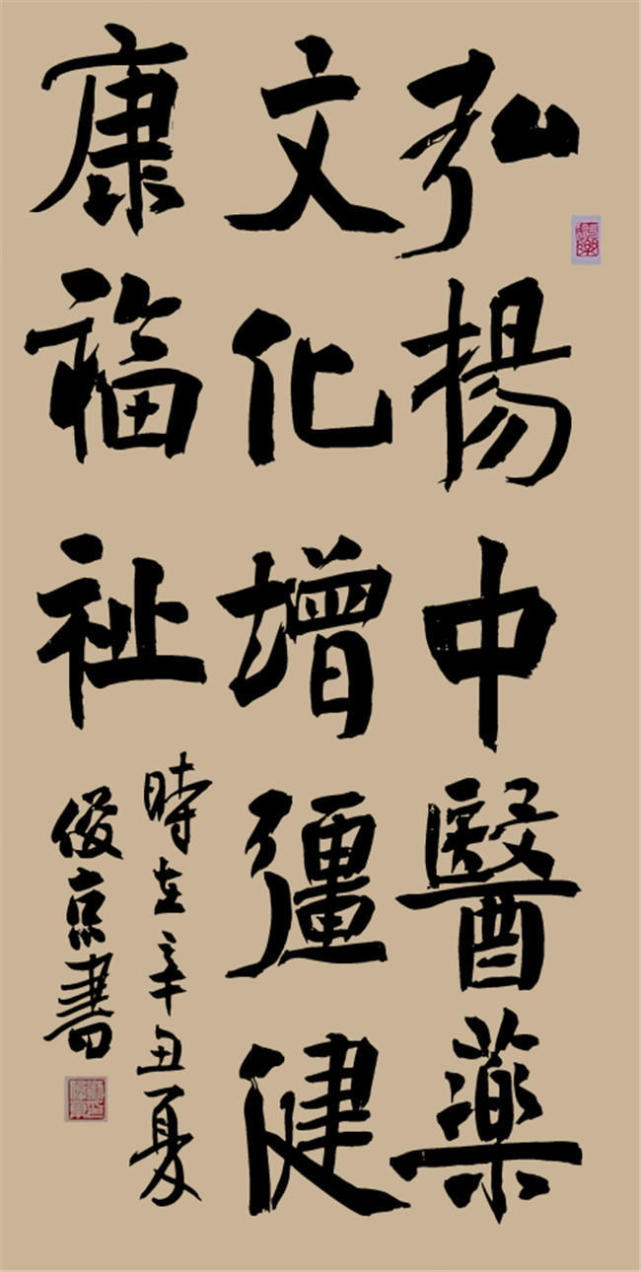 弘揚中醫藥
文化增彊健
康福祉
時在辛丑夏
俊京書